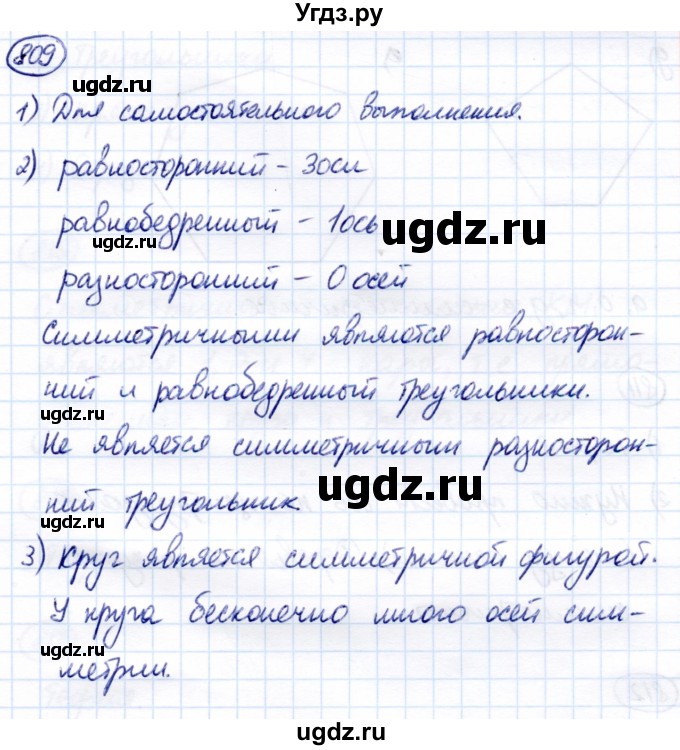 Угдз.ру
809
ugdz.ru
1) Для самостоятельного выполнения.
2) равносторонний – 3 оси
равнобедренный – 1 ось
ugdz.ru
разносторонний – 0 осей
Симметричными являются равносторон-
ний и равнобедренный треугольники.
ugdz.ru
Не является симметричным разносторон-
ugdz.ru
ний треугольник.
3) Круг является симметричной фигурой.
У круга бесконечно много осей сим-
метрии.
ugdz.ru